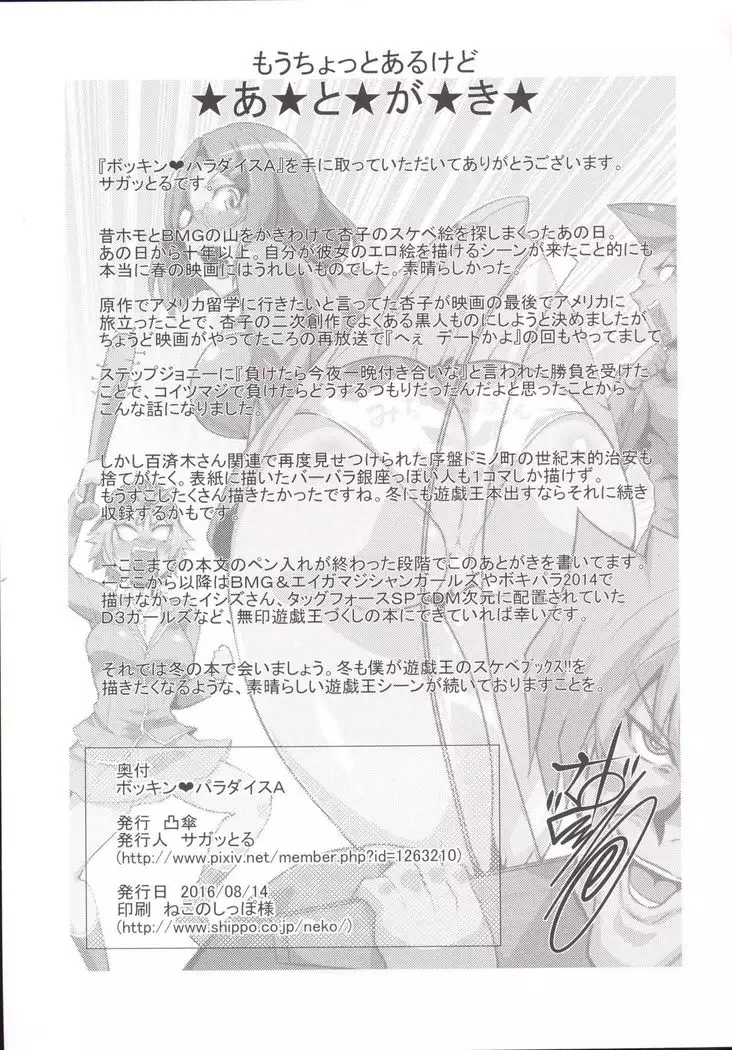 もうちょっとあるけど
★あ★と★が★き★
『ボッキン❤パラダイスA』を手に取っていただいてありがとうございます。
サガッとるです。
昔ホモとBMGの山をかきわけて杏子のスケベ絵を探しまくったあの日。
あの日から十年以上。自分が彼女のエロ絵を描けるシーンが来たこと的にも
本当に春の映画にはうれしいものでした。素晴らしかった。
原作でアメリカ留学に行きたいと言ってた杏子が映画の最後でアメリカに
旅立ったことで、杏子の二次創作でよくある黒人ものにしようと決めましたが
ちょうど映画がやってたころの再放送で『へぇ　デートかよ』の回もやってまして
ステップジョニーに『負けたら今夜一晩付き合いな』と言われた勝負を受けた
ことで、コイツマジで負けたらどうするつもりだったんだよと思ったことから
こんな話になりました。
しかし百済木さん関連で再度見せつけられた序盤ドミノ町の世紀末的治安も
捨てがたく。表紙に描いたバーバラ銀座っぽい人も1コマしか描けず。
もうすこしたくさん描きたかったですね。冬にも遊戯王本出すならそれに続き
収録するかもです。
―ここまでの本文のペン入れが終わった段階でこのあとがきを書いてます。
―ここから以降はBMG＆エイガマジシャンガールズやボキパラ2014で
描けなかったイシズさん、タッグフォースSPでDM次元に配置されていた
D3ガールズなど、無印遊戯王づくしの本にできていれば幸いです。
それでは冬の本で会いましょう。冬も僕が遊戯王のスケベブックス!!を
描きたくなるような、素晴らしい遊戯王シーンが続いておりますことを。
奥付
ボッキン❤パラダイスA
発行　凸傘
発行人　サガッとる
(http://www.pixiv.net/member.php?id=1263210)
発行日　2016/08/14
印刷　ねこのしっぽ様
(http://www.shippo.co.jp/neko/)